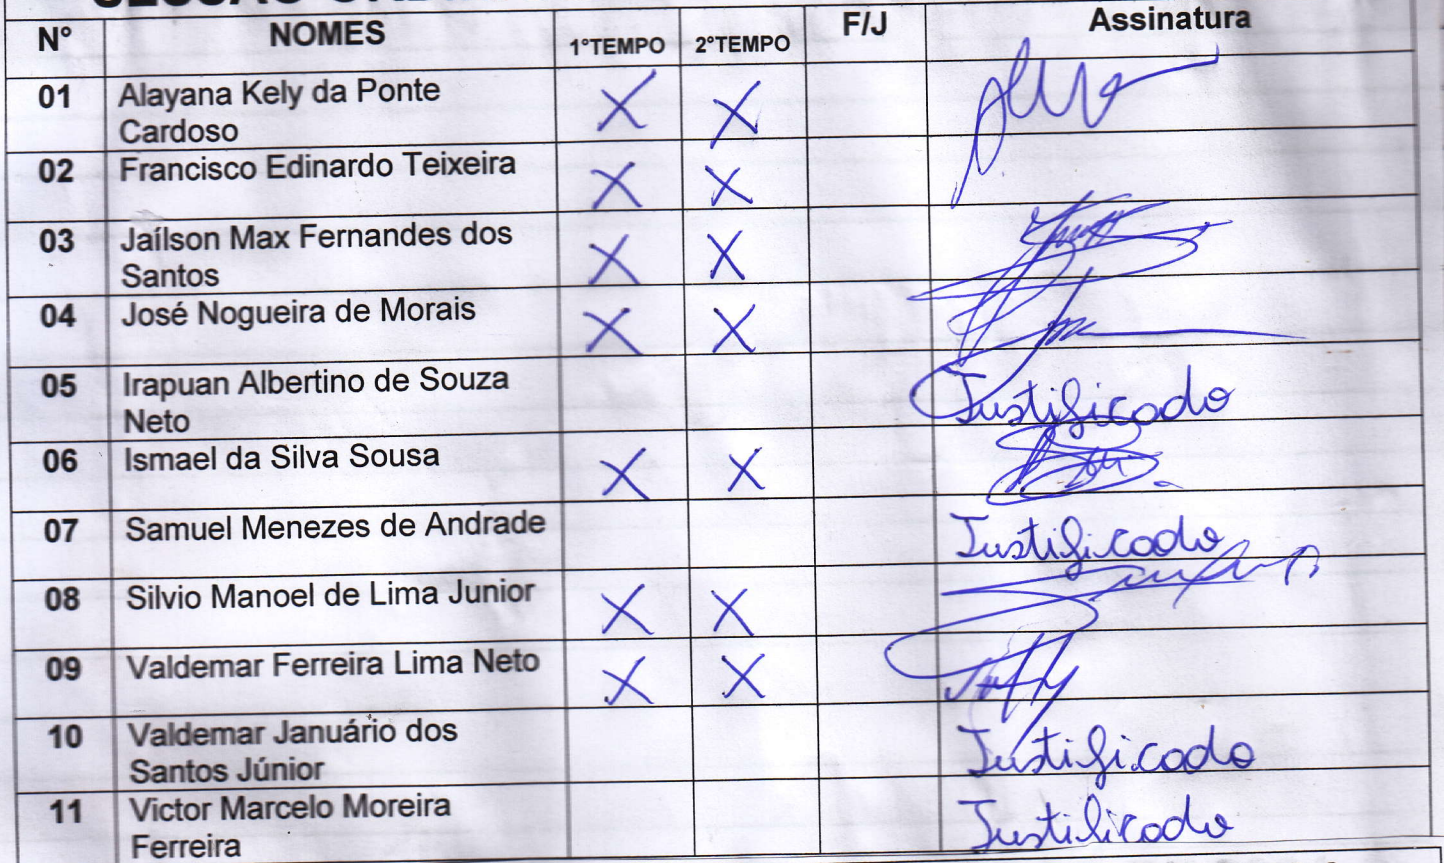 N° NOMES 1°TEMPO 2°TEMPO F/J Assinatura
01 Alayana Kely da Ponte X X
Cardoso
02 Francisco Edinardo Teixeira X X
03 Jaílson Max Fernandes dos X X
Santos
04 José Nogueira de Morais X X
05 Irapuan Albertino de Souza Justificado
Neto
06 Ismael da Silva Sousa X X
07 Samuel Menezes de Andrade Justificado
08 Silvio Manoel de Lima Junior X X
09 Valdemar Ferreira Lima Neto X X
10 Valdemar Januário dos Justificado
Santos Júnior
11 Victor Marcelo Moreira Justificado
Ferreira